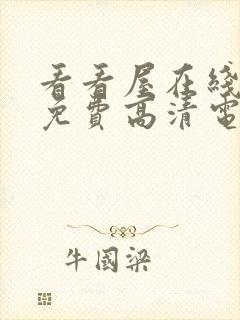 看看屋在綫
免費高清電
牛國梁